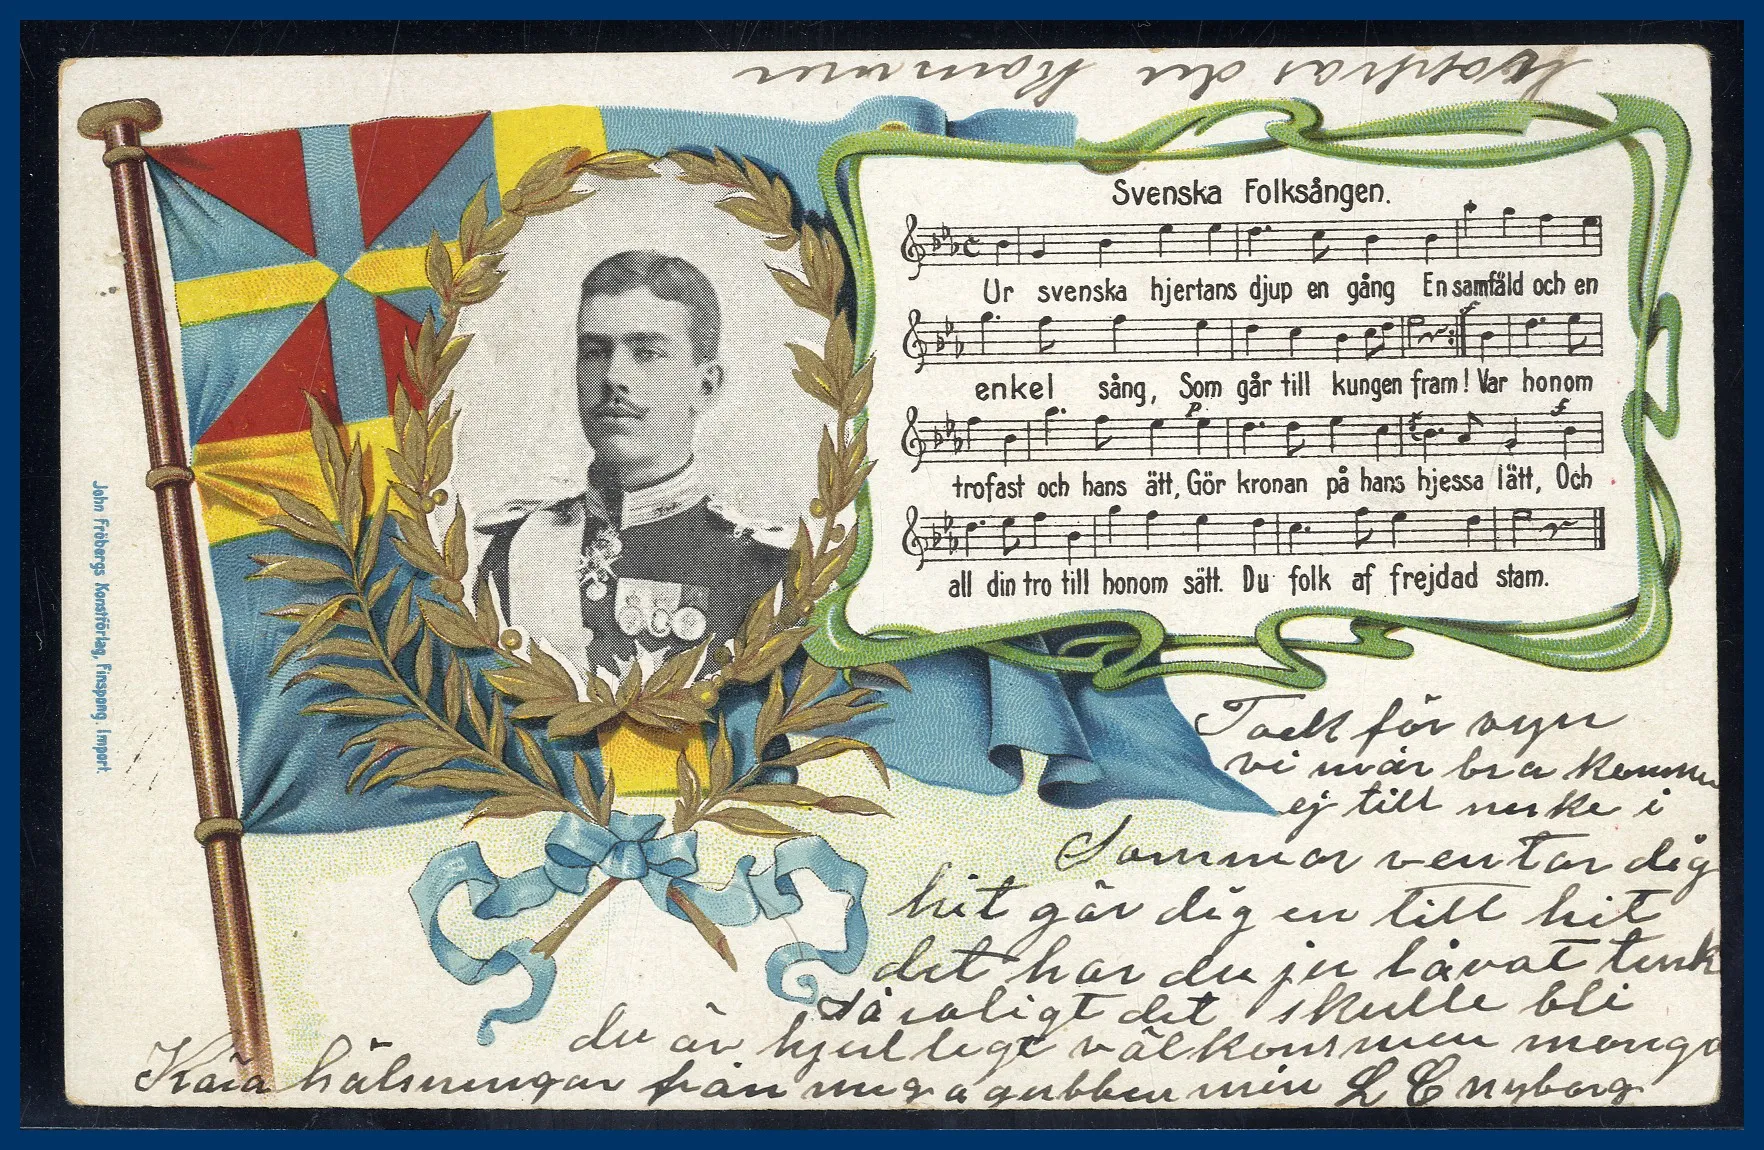 hoppas du kommer
Svenska Folksången.
Ur svenska hjertans djup en gång En samfäld och en
enkel sång, Som går till kungen fram! Var honom
trofast och hans ätt, Gör kronan på hans hjessa lätt, Och
all din tro till honom sätt. Du folk af frejdad stam.
John Fröbergs Konstförlag, Finspong. Import.
Tack för vyn
vi mår bra kommer
ej till
i
Sommar ventar dig
hit gör dig en titt hit
det har du ju låvat tenk
så roligt det skulle bli
du är hjertligt välkommen många
Kära hälsningar från mig o gubben min L E Nyborg